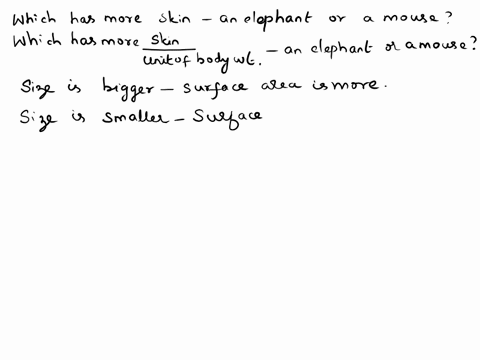 Which has more skin - an elephant or a mouse?
Which has more skin / unit of body wt. - an elephant or a mouse?
Size is bigger - surface area is more.
Size is smaller - Surface